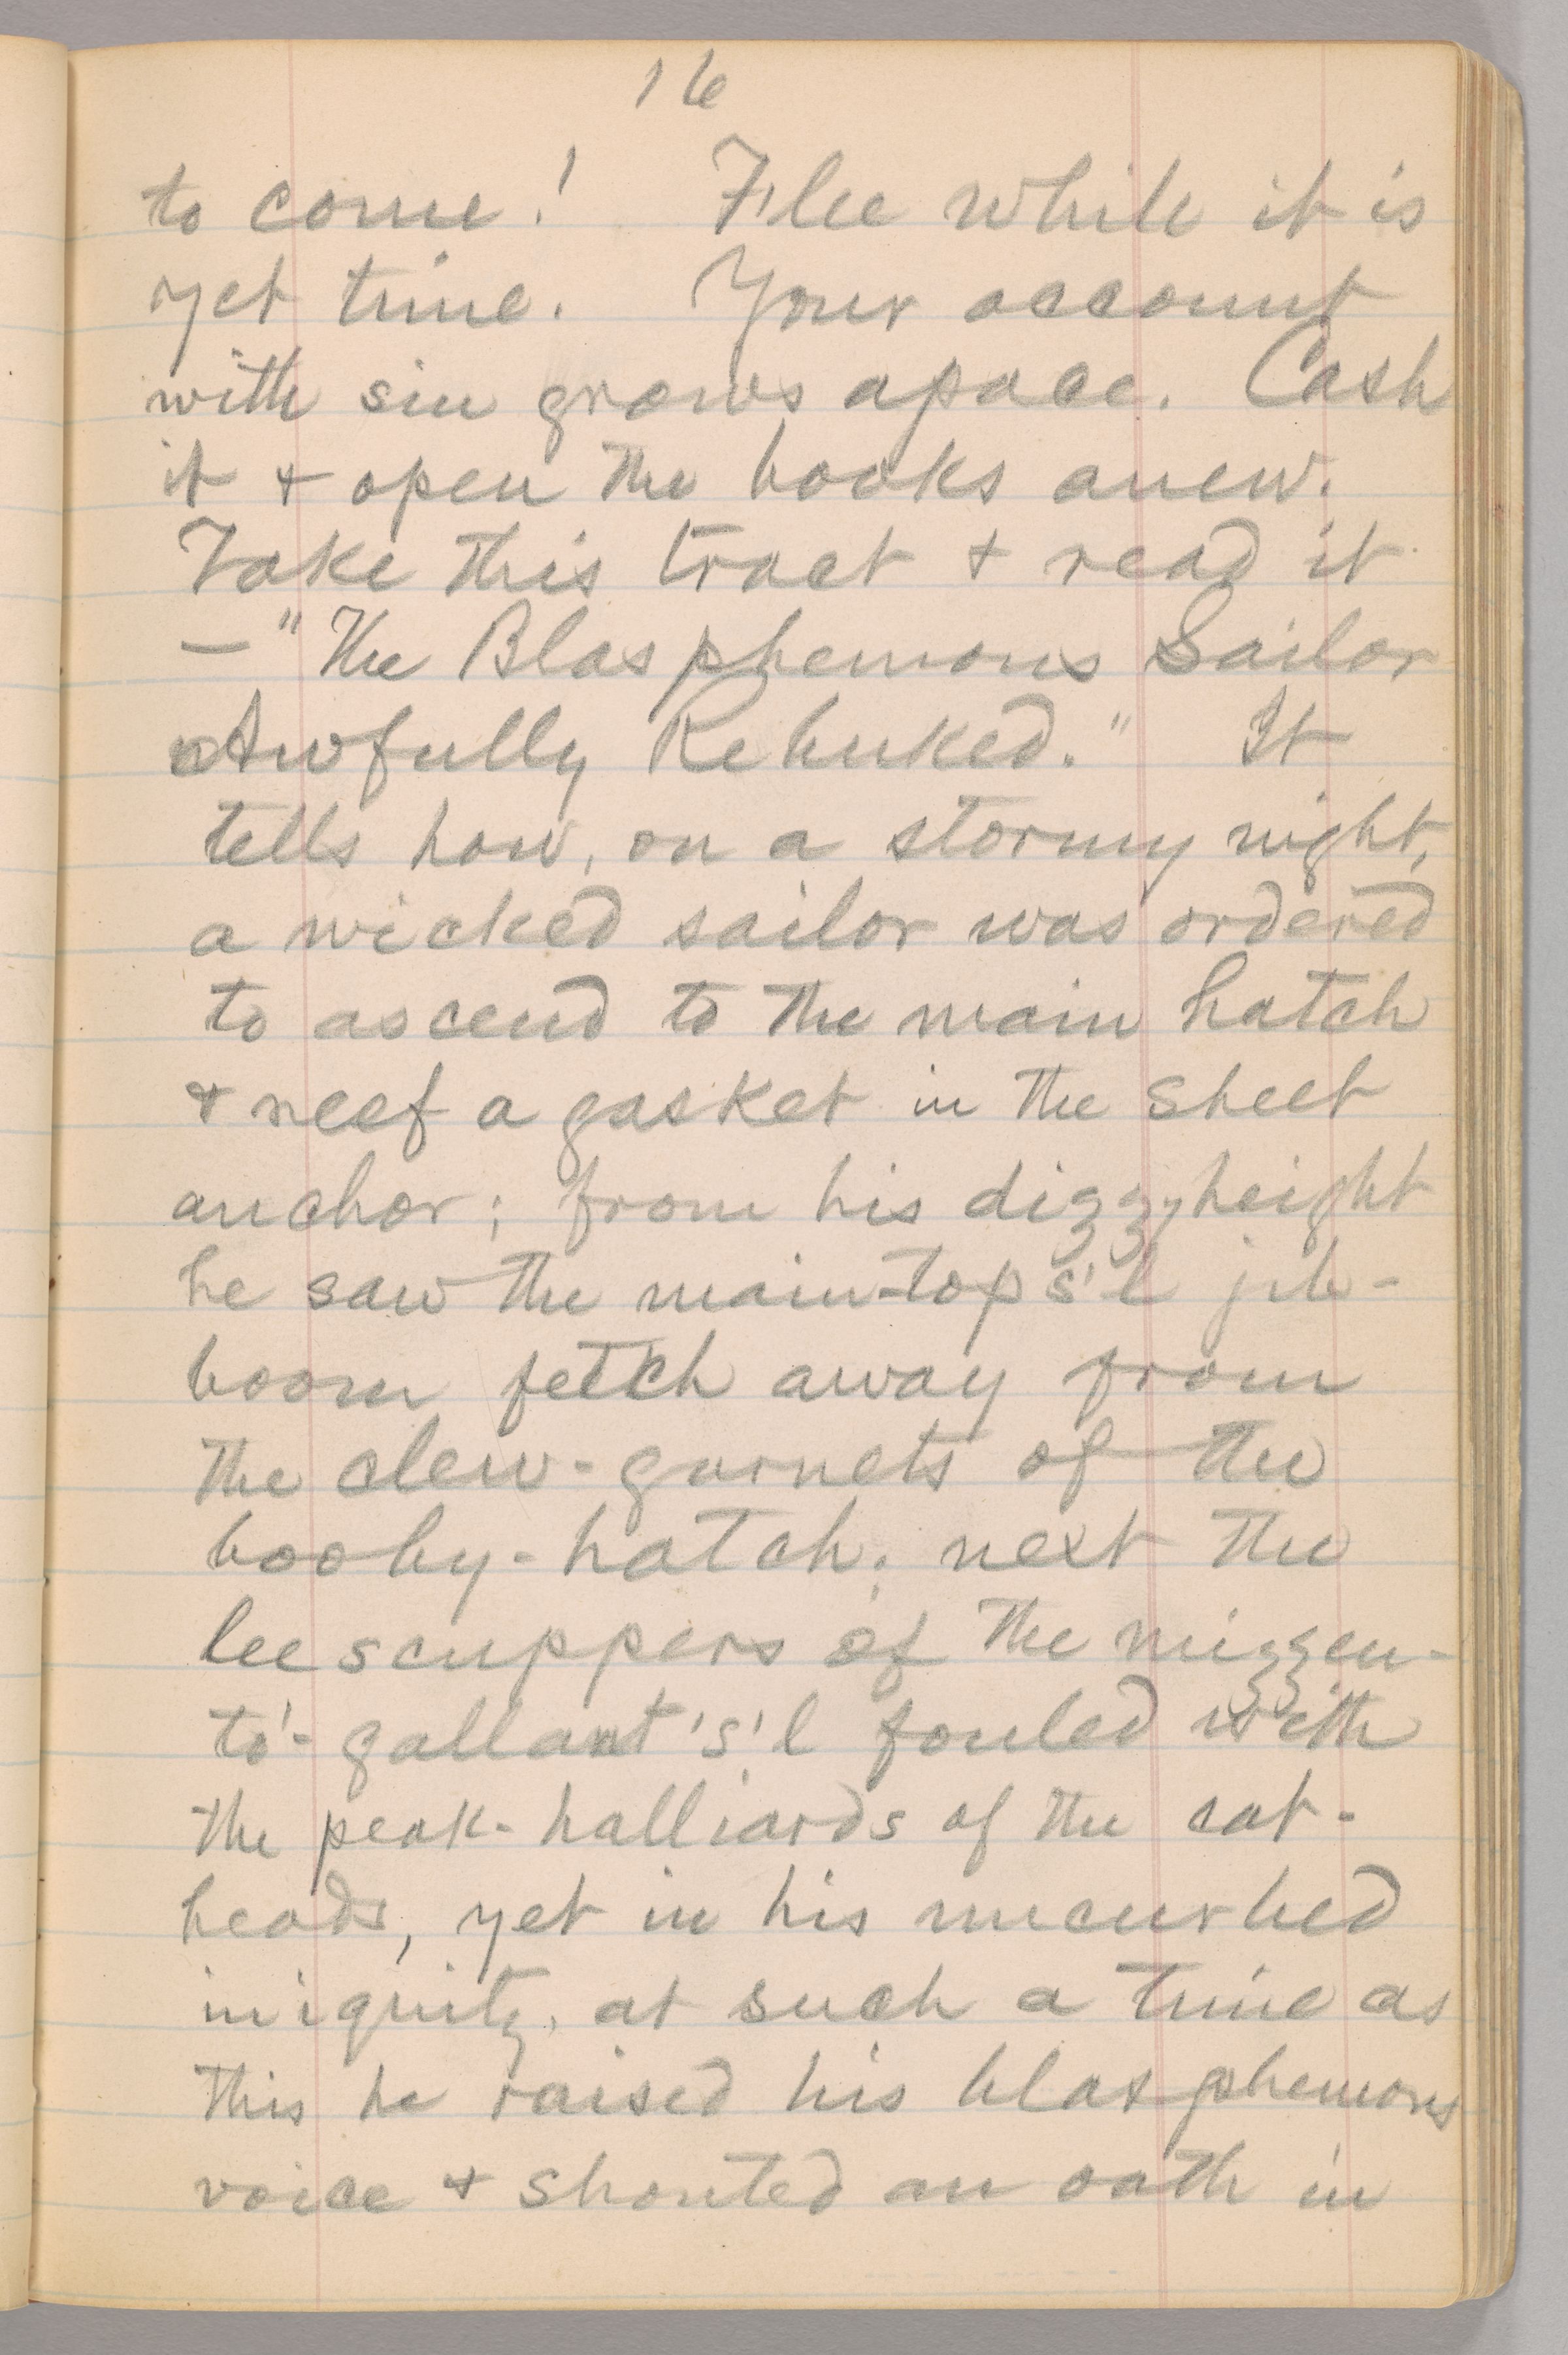 16
to come! Flee while it is
yet time. Your account
with sin grows apace. Cash
it & open the books anew.
Take this tract & read it
—"The Blasphemous Sailor
Awfully Rebuked." It
tells how, on a stormy night,
a wicked sailor was ordered
to ascend to the main hatch
& reef a gasket in the sheet
anchor; from his dizzy height
he saw the main-tops'l jib-
boom fetch away from
the clew-garnets of the
booby-hatch, next the
lee scuppers of the mizzen-
to'-gallant's'l fouled with
the peak-halliards of the cat-
heads, yet in his uncurbed
iniquity, at such a time as
this he raised his blasphemous
voice & shouted an oath in